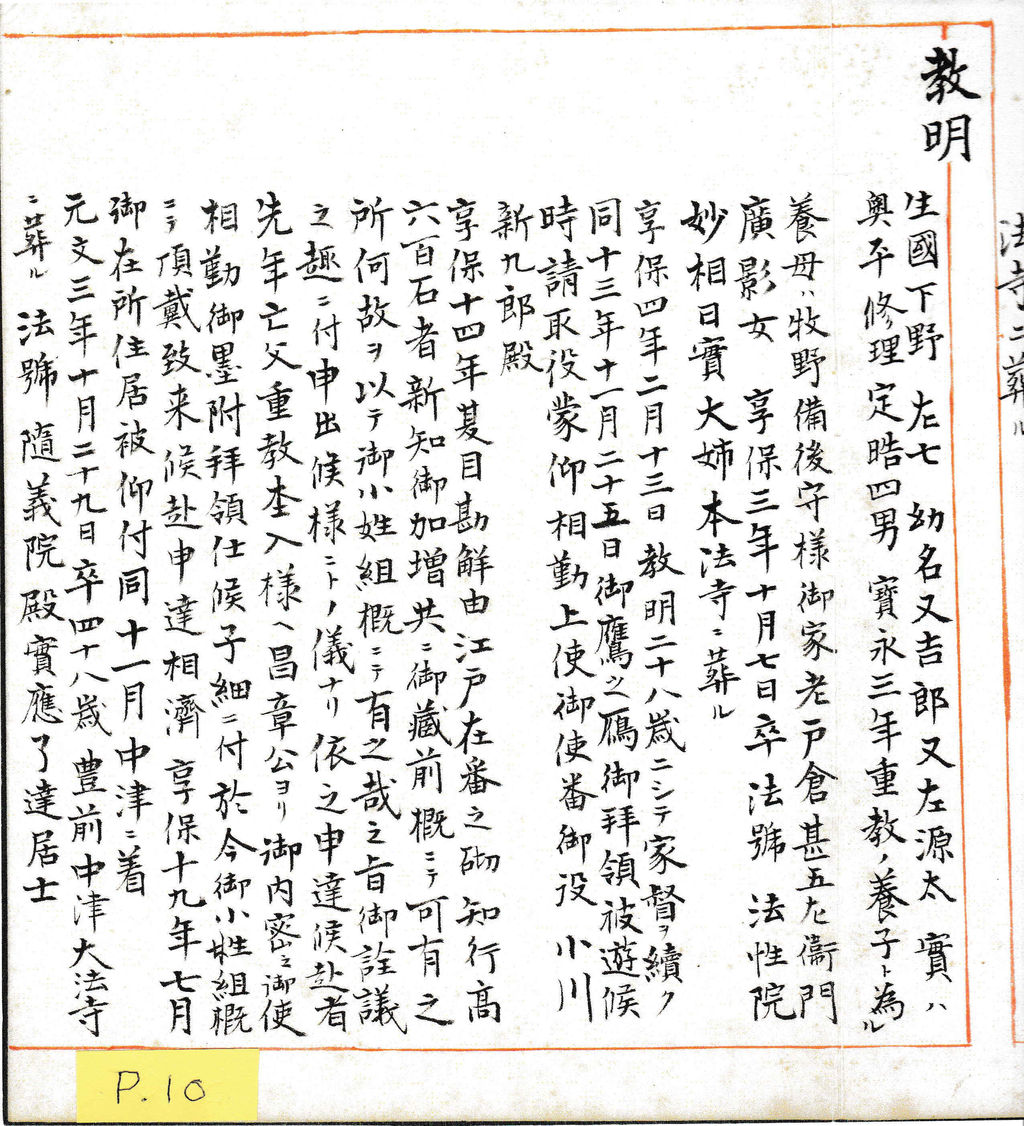 法寺ニ葬ル
教明
生國下野 左七 幼名又吉郎又左源太 實ハ
奥平修理定晧四男 寶永三年重教ノ養子ト為ル
養母ハ牧野備後守様御家老戸倉甚五左衞門
廣影女 享保三年十月七日卒 法號 法性院
妙相日實大姉本法寺ニ葬ル
享保四年二月十三日教明二十八歳ニシテ家督ヲ續ク
同十三年十一月二十五日御鷹之鴈御拜領被遊候
時請取役蒙仰相勤上使御使番御役小川
新九郎殿
享保十四年夏目勘解由江戸在番之砌知行高
六百石者新知御加増共ニ御藏前概ニテ可有之
所何故ヲ以テ御小姓組概ニテ有之哉之旨御詮議
之趣ニ付申出候様ニトノ儀ナリ依之申達候赴者
先年亡父重教杢入様ヘ昌章公ヨリ御内密之御使
相勤御墨附拜領仕候子細ニ付於今御小姓組概
ニテ頂戴致来候赴申達相濟享保十九年七月
御在所住居被仰付同十一月中津ニ着
元文三年十月二十九日卒四十八歳豊前中津大法寺
ニ葬ル 法號 隨義院殿實應了達居士
P.10